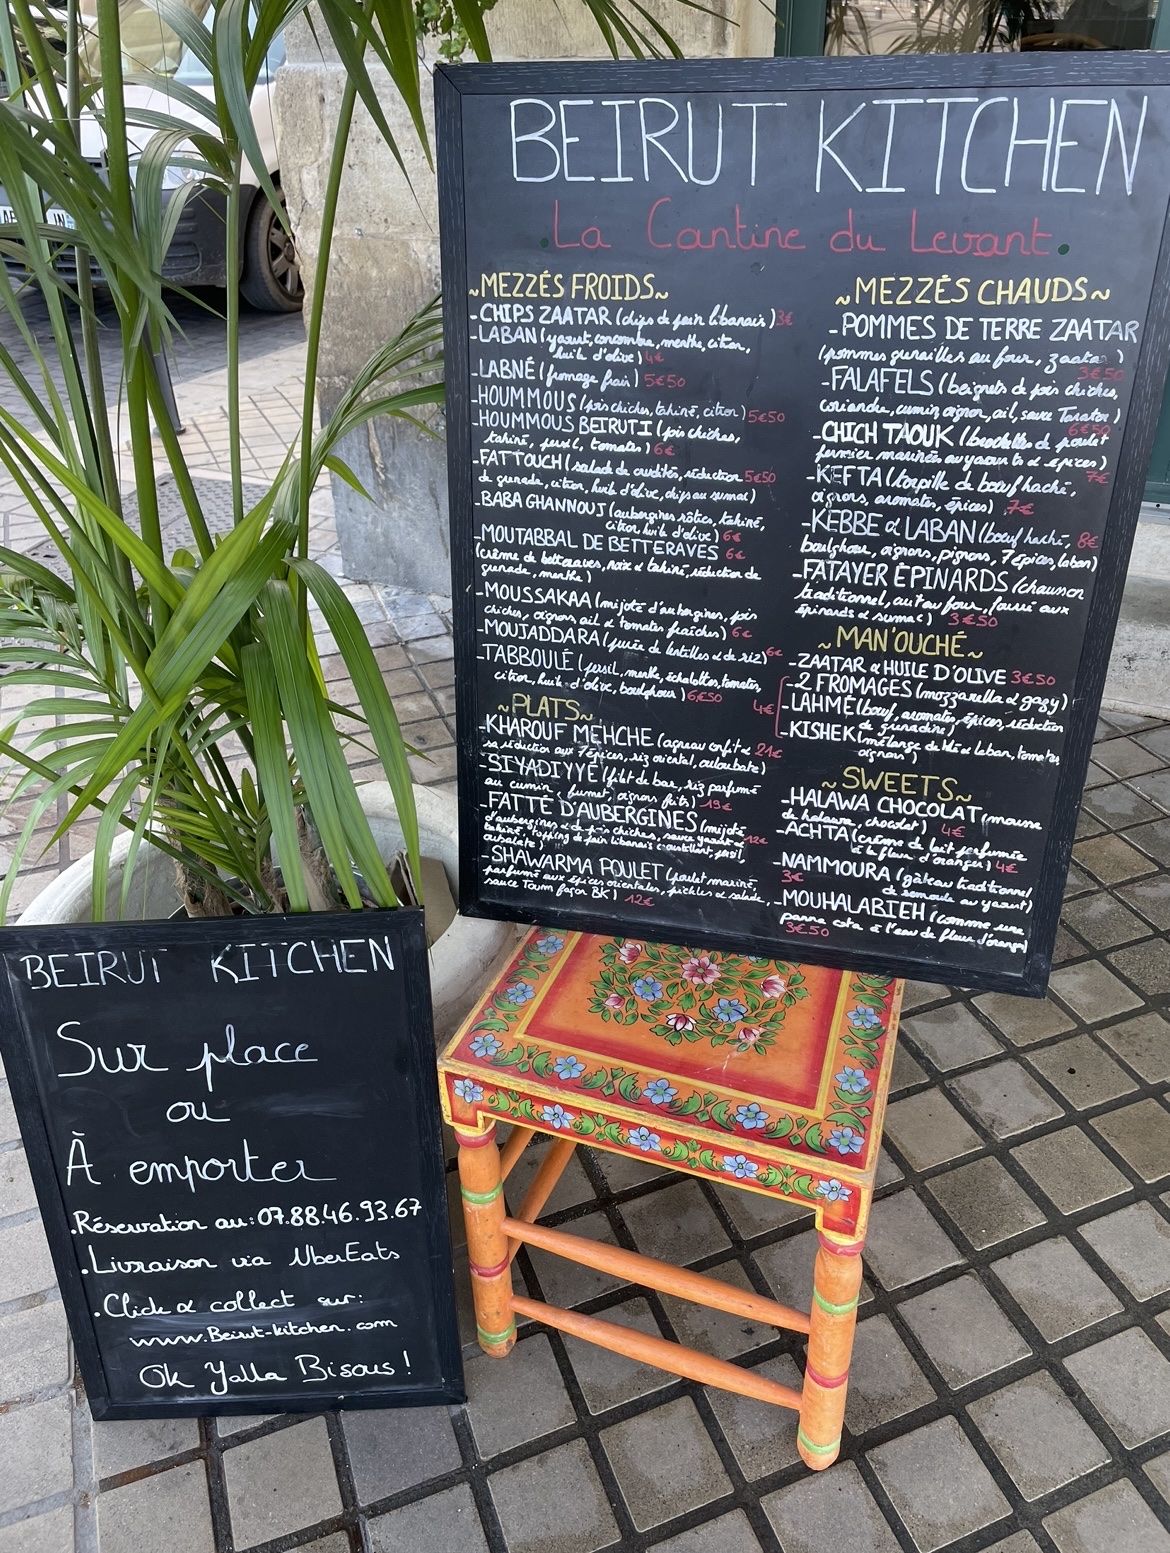 BEIRUT KITCHEN
.La Cantine du Levant.
~MEZZÉS FROIDS~
-CHIPS ZAATAR (chips de pain libanais) 3€
-LABAN (yaourt, concombre, menthe, citron,
huile d'olive) 4€
-LABNÉ (fromage frais) 5€50
-HOUMMOUS (pois chiches, tahiné, citron) 5€50
-HOUMMOUS BEIRUTI (pois chiches,
tahiné, persil, tomates) 6€
-FATTOUCH (salade de crudités, réduction 5€50
de grenade, citron, huile d'olive, chips au sumac)
-BABA GHANNOUJ (aubergines rôties, tahiné,
citron, huile d'olive) 6€
-MOUTABBAL DE BETTERAVES 6€
(crème de betteraves, noix & tahiné, réduction de
grenade, menthe)
-MOUSSAKAA (mijoté d'aubergines, pois
chiches, oignons ail & tomates fraîches) 6€
-MOUJADDARA (purée de lentilles & de riz) 6€
-TABBOULÉ (persil, menthe, échalottes, tomates,
citron, huile d'olive, boulghour) 6,€50
~PLATS~
-KHAROUF MEHCHE (agneau confit & 21€
sa réduction aux 7 épices, riz oriental, ouloubate)
-SIYADIYYÉ (filet de bar, riz parfumé
au cumin, fumet, oignons frits) 19€
-FATTÉ D'AUBERGINES (mijoté 12€
d'aubergines & de pois chiches, sauce yaourt &
tahiné, topping de pain libanais croustillant, persil,
salate)
-SHAWARMA POULET (poulet mariné,
parfumé aux épices orientales, pickles & salade,
sauce Toum façon BK) 12€
~MEZZÉS CHAUDS~
-POMMES DE TERRE ZAATAR
(pommes grenailles au four, zaatar)
3€50
-FALAFELS (beignets de pois chiches,
coriandre, cumin, oignon, ail, sauce Tarator)
6€50
-CHICH TAOUK (brochettes de poulet
fermier marinées au yaourt & épices) 7€
-KEFTA (torpille de bœuf haché,
oignons, aromates, épices) 7€
-KEBBE & LABAN (bœuf haché, 8€
boulghour, oignons, pignons, 7 épices, laban)
-FATAYER ÉPINARDS (chausson
traditionnel, cuit au four, fourré aux
épinards & sumac) 3€50
~MAN'OUCHÉ~
-ZAATAR & HUILE D'OLIVE 3€50
-2 FROMAGES (mozzarella & gouy)
4€ -LAHMÉ (bœuf, aromates, épices, réduction
de grenadine)
-KISHEK (mélange de blé & laban, tomates
oignons)
~SWEETS~
-HALAWA CHOCOLAT (mousse
de halawa, chocolat) 4€
-ACHTA (crème de lait parfumée
à la fleur d'oranger) 4€
-NAMMOURA (gâteau traditionnel
3€ de semoule au yaourt)
-MOUHALABIEH (comme une
panna cota à l'eau de fleur d'oranger)
3€50
BEIRUT KITCHEN
Sur place
ou
À emporter
.Réservation au: 07.88.46.93.67
.Livraison via UberEats
.Click & collect sur:
www.Beirut-kitchen.com
Ok Yalla Bisous!